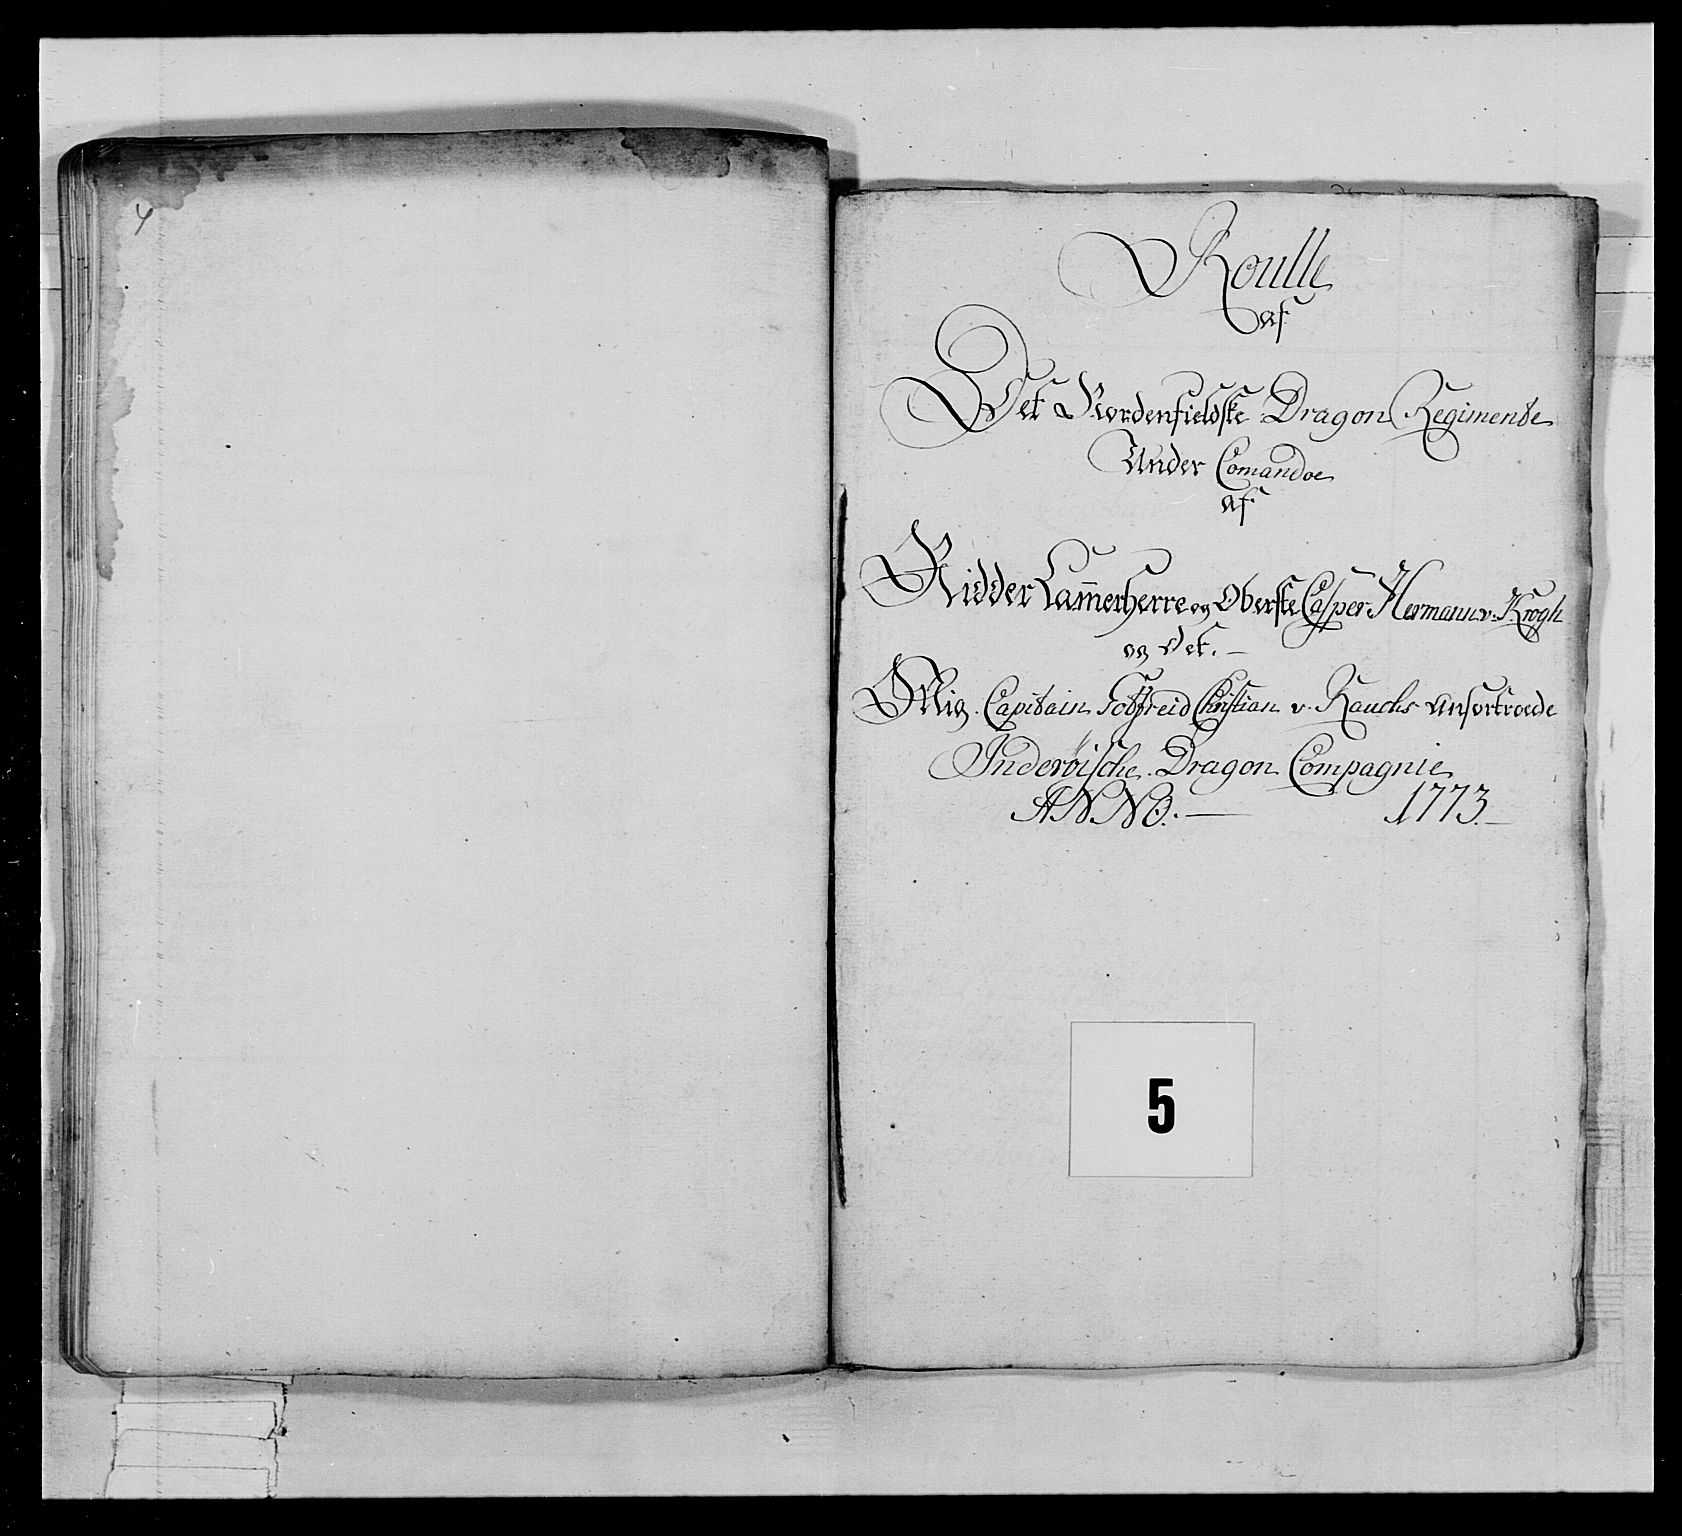 4
Roulle
af
Det Nordenfieldske Dragon Regimente
Under Comandoe
af
Ridder Kam̄erherre og Oberste Casper Hermann v. Krogh
og Det. —
Mig Capitain Gotfreid Christian v. Rauchs Anfortroede
Inderöische Dragon Compagnie
ANNO. — 1773. —
5